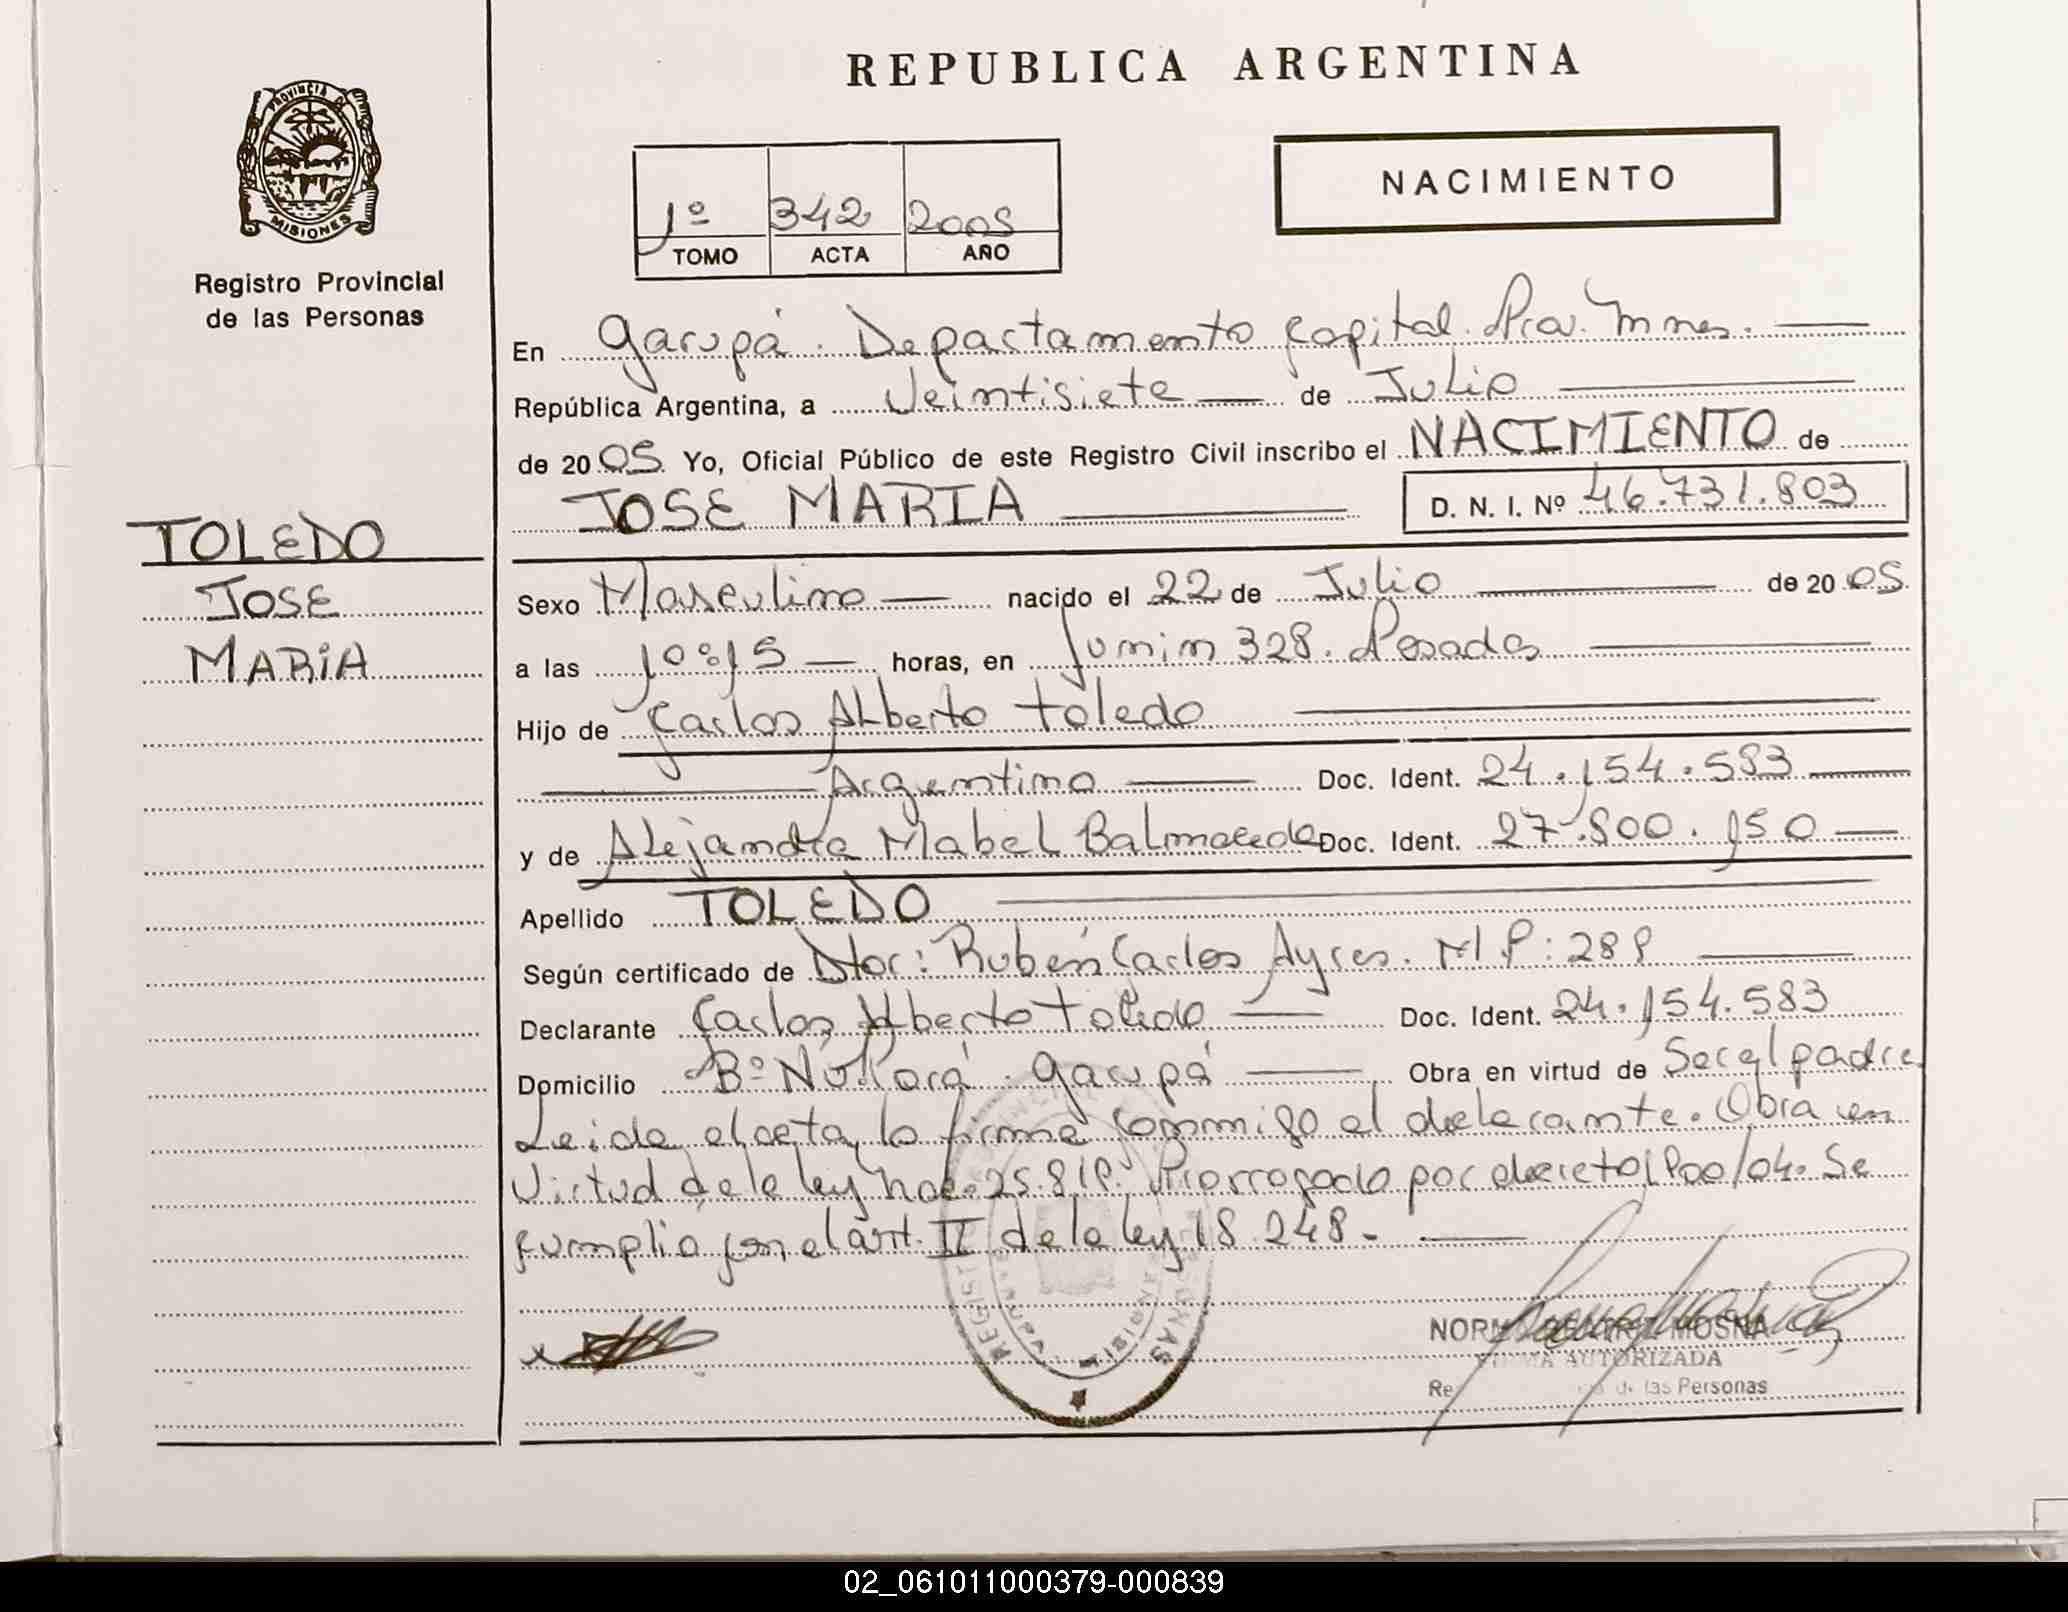 REPUBLICA ARGENTINA
PROVINCIA DE
MISIONES
Registro Provincial
de las Personas
1º 342 2005
TOMO ACTA AÑO
NACIMIENTO
En Garupá. Departamento Capital. Pcia. Mnes.
República Argentina, a Veintisiete de Julio
de 2005 Yo, Oficial Público de este Registro Civil inscribo el NACIMIENTO de
JOSE MARIA D. N. I. Nº 46.731.803
TOLEDO
JOSE
MARIA
Sexo Masculino nacido el 22 de Julio de 2005
a las 10:15 horas, en Junin 328. Posadas
Hijo de Carlos Alberto Toledo
Argentino Doc. Ident. 24.154.583
y de Alejandra Mabel Balmaceda Doc. Ident.
Apellido TOLEDO
Según certificado de Dtor: Rubén Carlos Ayres. M.P:
Declarante Carlos Alberto Toledo Doc. Ident. 24.154.583
Domicilio Bº Ñu Porá. Garupá Obra en virtud de Ser el padre
Leida el acta, la firma conmigo el declarante. Obra en
Virtud de la ley nac. Prorrogado por decreto Se
cumplio con el art. II de la ley 18.248.-
NORMA BEATRIZ MOSNA
FIRMA AUTORIZADA
de las Personas
02_061011000379-000839